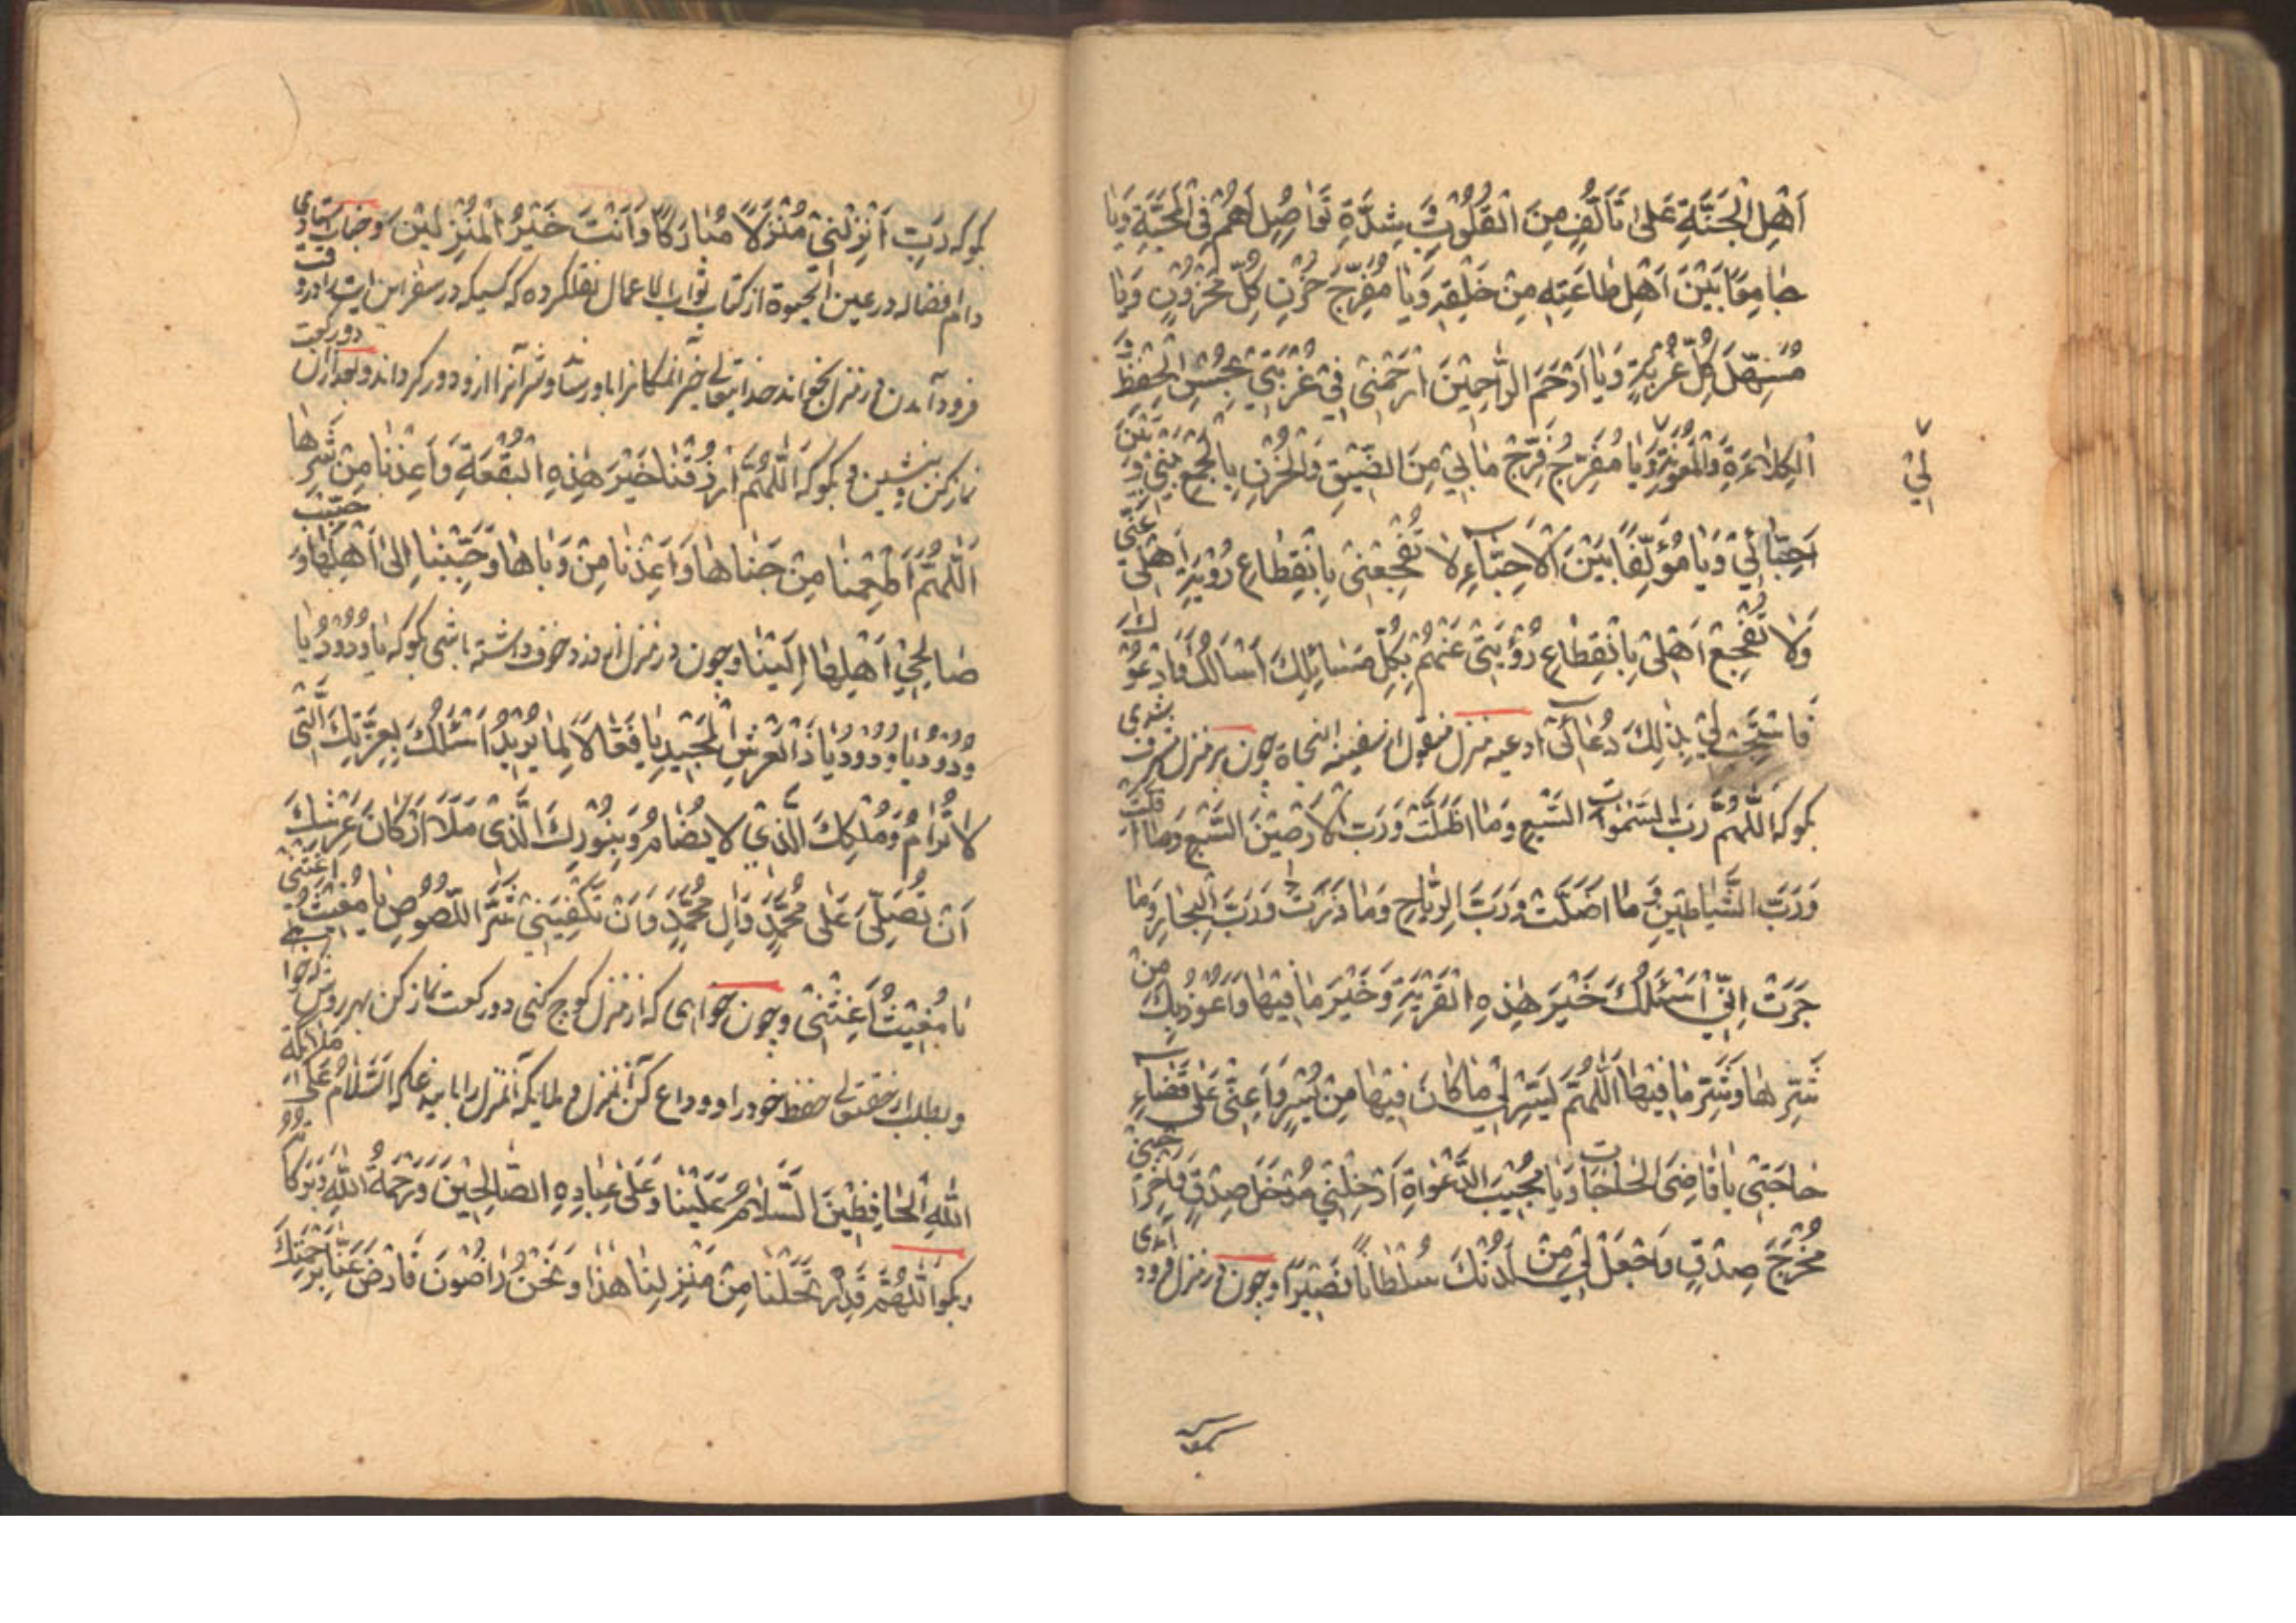 اَهْلِ الْجَنَّةِ عَلىٰ تَأَلُّفٍ مِنَ الْقُلُوبِ وَ شِدَّةِ تَوَاصُلِهِمْ فِى الْمَحَبَّةِ وَيٰا
جٰامِعًا بَيْنَ اَهْلِ طٰاعَتِهِ مِنْ خَلْقِهِ وَيٰا مُفَرِّجَ حُزْنِ كُلِّ مَحْزُونٍ وَيٰا
مُسَهِّلَ كُلِّ غُرْبَةٍ وَيٰا اَرْحَمَ الرّٰاحِمِيْنَ ارْحَمْنِى فِىْ غُرْبَتِىْ بِحُسْنِ الْحِفْظِ وَ
الْكِلاٰءَةِ وَالْمَعُونَةِ وَيٰا مُفَرِّجُ فَرِّجْ مٰا بِىْ مِنَ الضِّيْقِ وَالْحُزْنِ بِالْجَمْعِ بَيْنِىْ وَ بَيْنَ
لِىْ
اَحِبّٰائِىْ وَيٰا مُؤَلِّفًا بَيْنَ الْاَحِبّٰآءِ لاٰ تَفْجَعْنِى بِانْقِطٰاعِ رُؤْيَةِ اَهْلِىْ عَنِّى
وَلاٰ تَفْجَعْ اَهْلِىْ بِانْقِطٰاعِ رُؤْيَتِىْ عَنْهُمْ بِكُلِّ مَسٰائِلِكَ اَسْأَلُكَ وَ اَدْعُوكَ
فَاسْتَجِبْ لِىْ بِذٰلِكَ دُعٰآئِى ادعيه منزل منقول از سفينه النجاة چون بر منزل مشرف شدى
بگو كه اَللّٰهُمَّ رَبَّ السَّمٰوٰاتِ السَّبْعِ وَمٰا اَظَلَّتْ وَرَبَّ الْاَرَضِيْنَ السَّبْعِ وَمٰا اَقَلَّتْ
وَرَبَّ الشَّيٰاطِيْنِ وَ مٰا اَضَلَّتْ وَرَبَّ الرِّيٰاحِ وَمٰا ذَرَتْ وَرَبَّ الْبِحٰارِ وَمٰا
جَرَتْ اِنِّىْ اَسْئَلُكَ خَيْرَ هٰذِهِ الْقَرْيَةِ وَخَيْرَ مٰا فِيْهٰا وَاَعُوذُ بِكَ مِنْ
شَرِّهٰا وَشَرِّ مٰا فِيْهٰا اَللّٰهُمَّ يَسِّرْ لِىْ مٰا كٰانَ فِيْهٰا مِنْ يُسْرٍ وَاَعِنِّىْ عَلىٰ قَضٰآءِ
حٰاجَتِىْ يٰا قٰاضِىَ الْحٰاجٰاتِ وَيٰا مُجِيْبَ الدَّعَوٰاتِ اَدْخِلْنِىْ مُدْخَلَ صِدْقٍ وَاَخْرِجْنِىْ
مُخْرَجَ صِدْقٍ وَاجْعَلْ لِىْ مِنْ لَدُنْكَ سُلْطٰانًا نَصِيْرًا و چون در منزل فرود آمدى
بگو كه
بگو كه رَبِّ اَنْزِلْنِىْ مُنْزَلًا مُبٰارَكًا وَاَنْتَ خَيْرُ الْمُنْزِلِيْنَ و جناب استادى
دام افضاله در عين الحيوة از كتاب ثواب الاعمال نقل كرده كه كسيكه در سفر اين آيت را در وقت
فرود آمدن در منزل بخواند خدايتعالى خير آنمكانرا باو رساند و شر آنرا از او دور گرداند و بعد از آن دو ركعت
نماز كن و بنشين و بگو كه اَللّٰهُمَّ ارْزُقْنٰا خَيْرَ هٰذِهِ الْبُقْعَةِ وَاَعِذْنٰا مِنْ شَرِّهٰا
اَللّٰهُمَّ اَطْعِمْنٰا مِنْ جَنٰاهٰا وَاَعِذْنٰا مِنْ وَبٰاهٰا وَحَبِّبْنٰا اِلىٰ اَهْلِهٰا وَ حَبِّبْ
صٰالِحِىْ اَهْلِهٰا اِلَيْنٰا و چون در منزل از دزد خوف داشته باشى بگو كه يٰا وَدُوْدُ يٰا
وَدُوْدُ يٰا وَدُوْدُ يٰا ذَا الْعَرْشِ الْمَجِيْدِ يٰا فَعّٰالًا لِمٰا يُرِيْدُ اَسْئَلُكَ بِعِزَّتِكَ الَّتِى
لاٰ تُرٰامُ وَمُلْكِكَ الَّذِىْ لاٰ يُضٰامُ وَبِنُوْرِكَ الَّذِى مَلَأَ اَرْكٰانَ عَرْشِكَ
اَنْ تُصَلِّىَ عَلىٰ مُحَمَّدٍ وَاٰلِ مُحَمَّدٍ وَاَنْ تَكْفِيَنِىْ شَرَّ اللُّصُوْصِ يٰا مُغِيْثُ اَغِثْنِى
يٰا مُغِيْثُ اَغِثْنِى و چون خواهى كه از منزل كوچ كنى دو ركعت نماز كن بهر روش كه خواهى
و بطلب از حقتعالى حفظ خود را و وداع كن آنمنزل و ملايكه آنمنزل را باينوع كه اَلسَّلاٰمُ عَلىٰ مَلاٰئِكَةِ
اللّٰهِ الْحٰافِظِيْنَ السَّلاٰمُ عَلَيْنٰا وَعَلىٰ عِبٰادِهِ الصّٰالِحِيْنَ وَرَحْمَةُ اللّٰهِ وَبَرَكٰاتُهُ
و بگو اَللّٰهُمَّ قَدِ ارْتَحَلْنٰا مِنْ مَنْزِلِنٰا هٰذٰا وَنَحْنُ رٰاضُوْنَ فَارْضَ عَنّٰا بِرَحْمَتِكَ